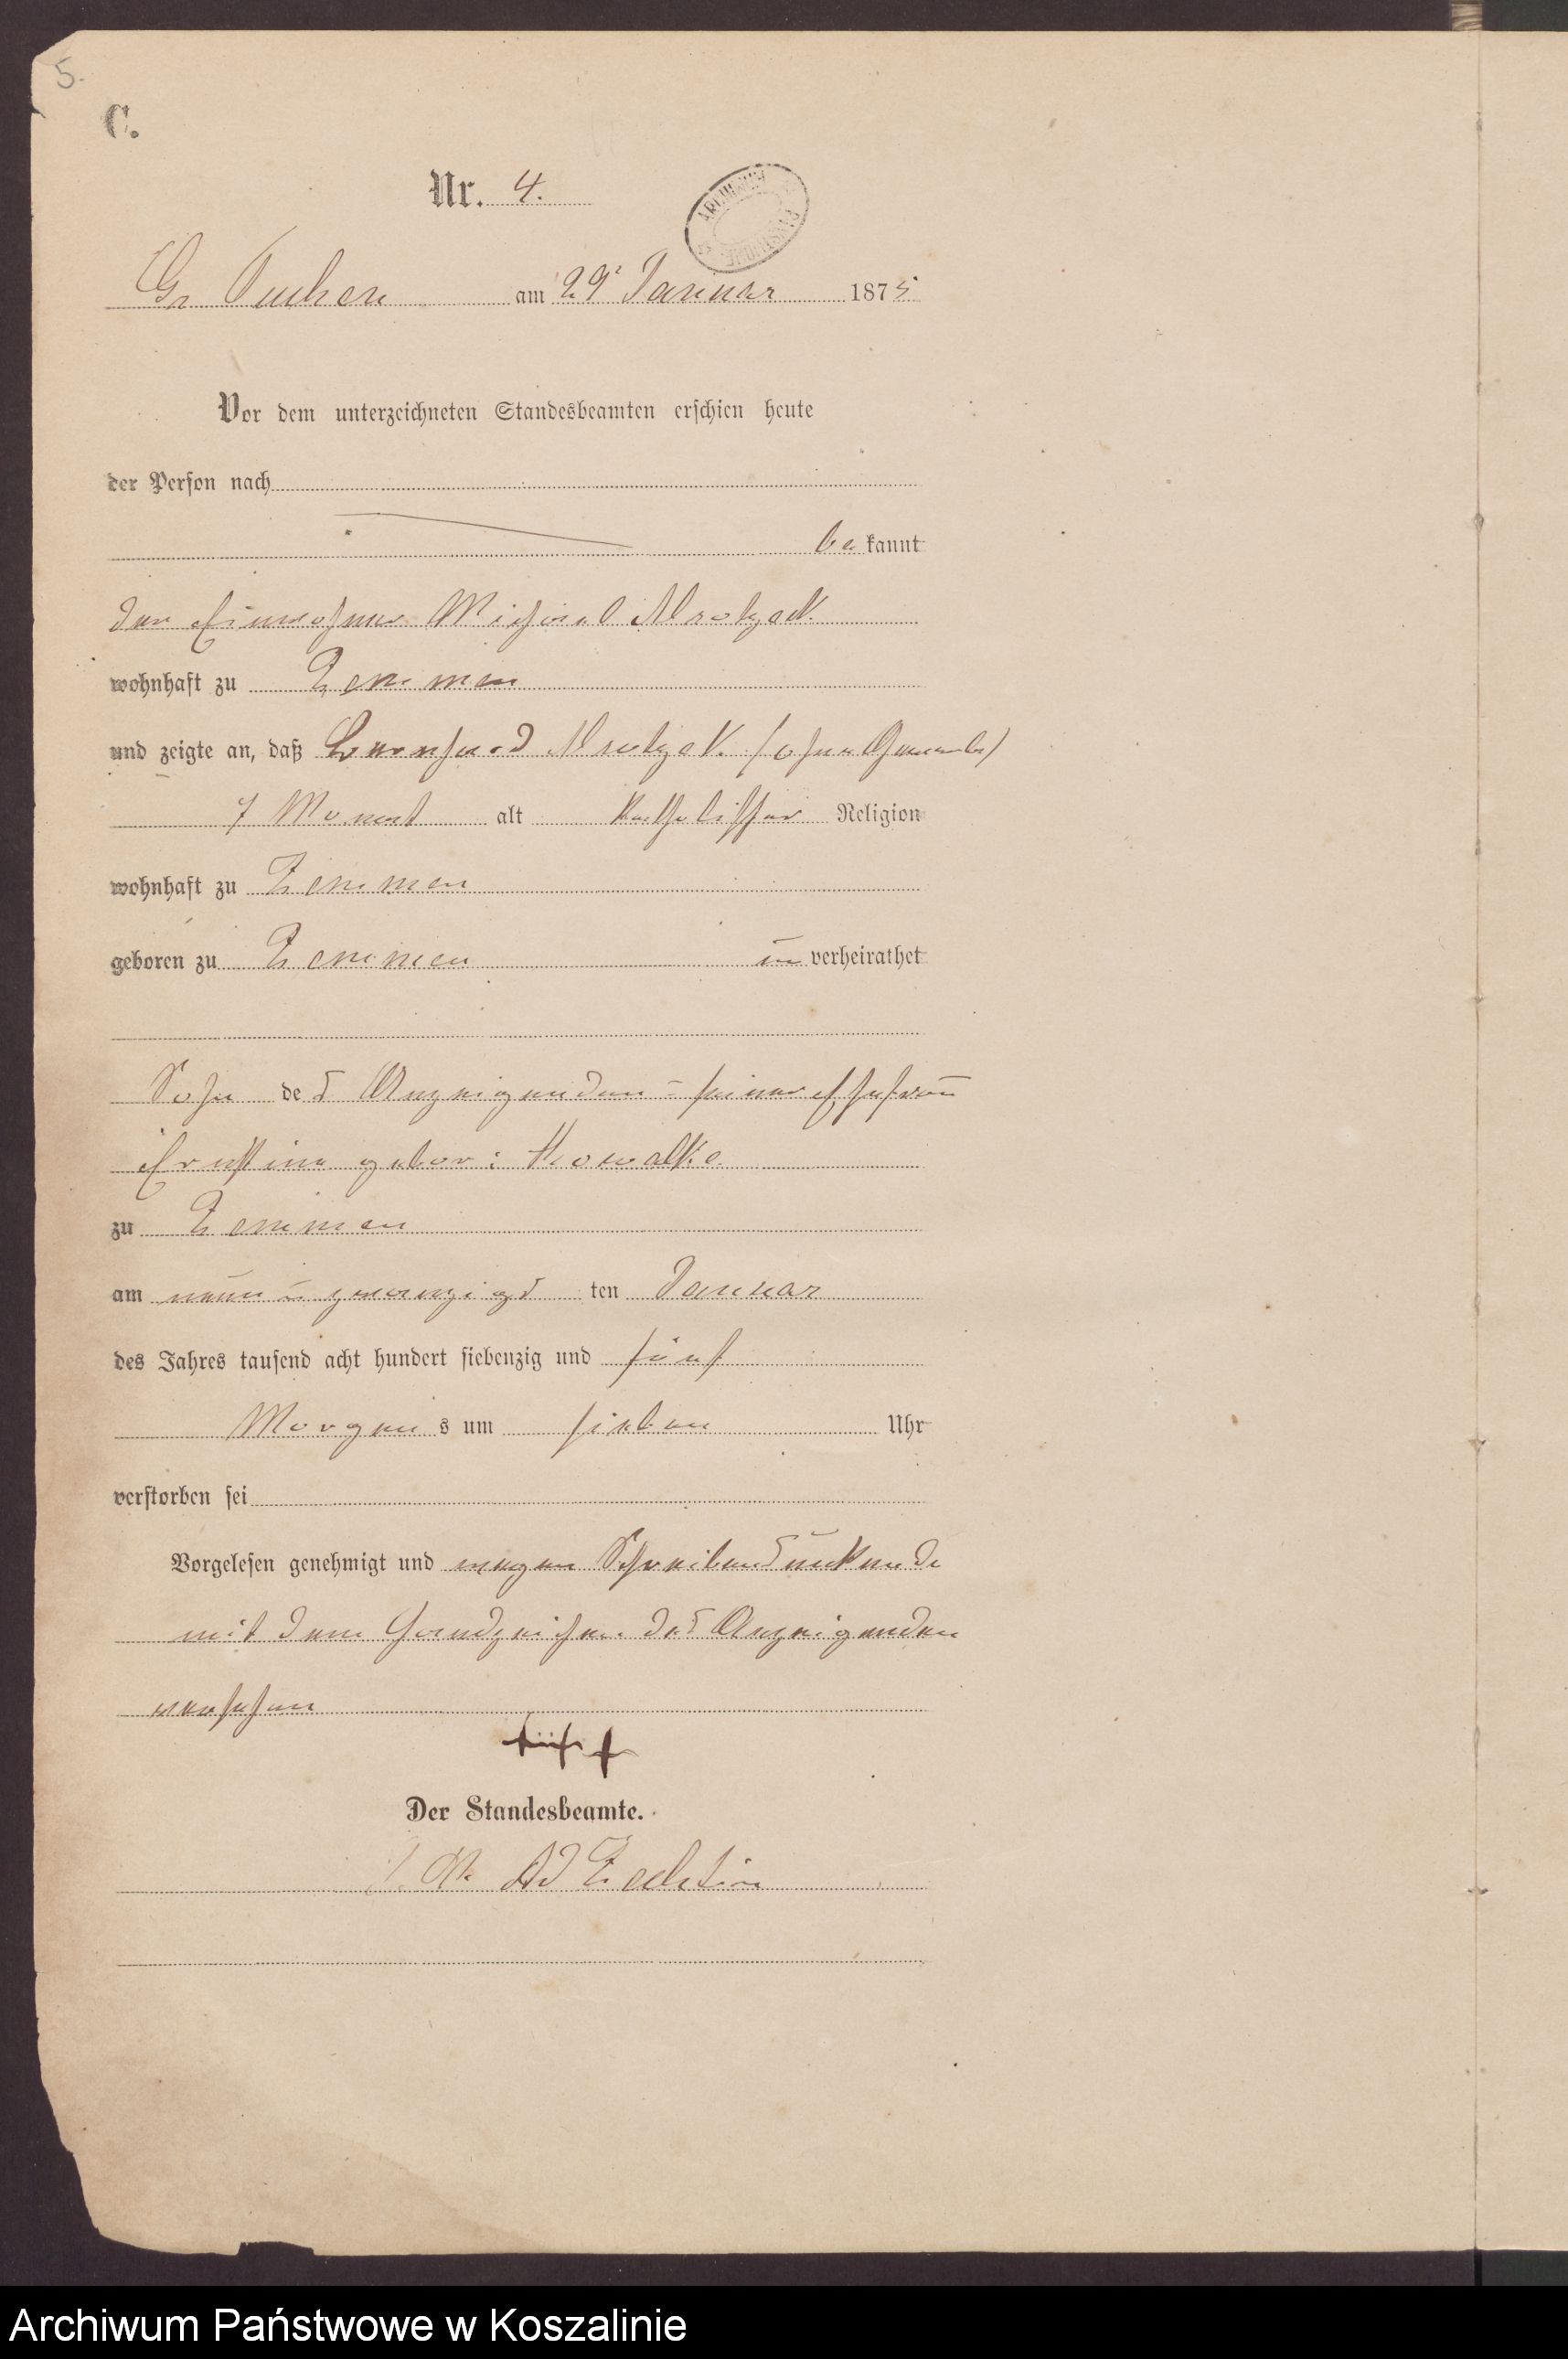 5.
C.
Nr. 4.
ARCHIWUM
Gr Tuchen am 29t Januar 1875
Vor dem unterzeichneten Standesbeamten erschien heute
der Person nach
be kannt
der Einwohner Michael Mrotzeck
wohnhaft zu Zemmen
und zeigte an, daß Bernhard Mrotzek (ohne Gewerbe)
7 Monat alt katholischer Religion
wohnhaft zu Zemmen
geboren zu Zemmen un verheirathet
Sohn des Anzeigenden u seiner Ehefrau
Ernstine gebor: Kowalke
zu Zemmen
am neun u zwanzigs ten Januar
des Jahres tausend acht hundert siebenzig und fünf
Morgen s um sieben Uhr
verstorben sei
Vorgelesen genehmigt und wegen Schreibensunkunde
mit dem Handzeichen des Anzeigenden
versehen
Der Standesbeamte.
Archiwum Państwowe w Koszalinie